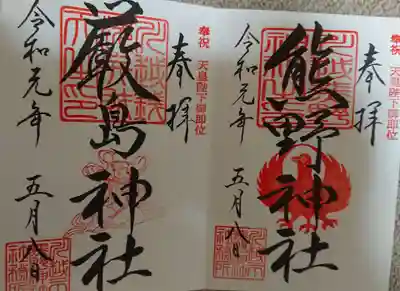 奉祝 天皇陛下御即位
奉拝
熊野神社
令和元年 五月八日
奉祝 天皇陛下御即位
奉拝
厳島神社
令和元年 五月八日